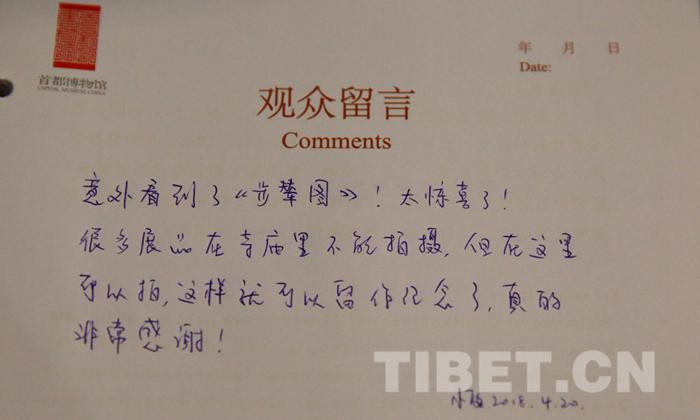 首都博物馆
CAPITAL MUSEUM, CHINA
年 月 日
Date:
观众留言
Comments
意外看到了《步辇图》！太惊喜了！
很多展品在寺庙里不能拍摄，但在这里
可以拍，这样就可以留作纪念了，真的
非常感谢！
TIBET.CN
2018.4.20.